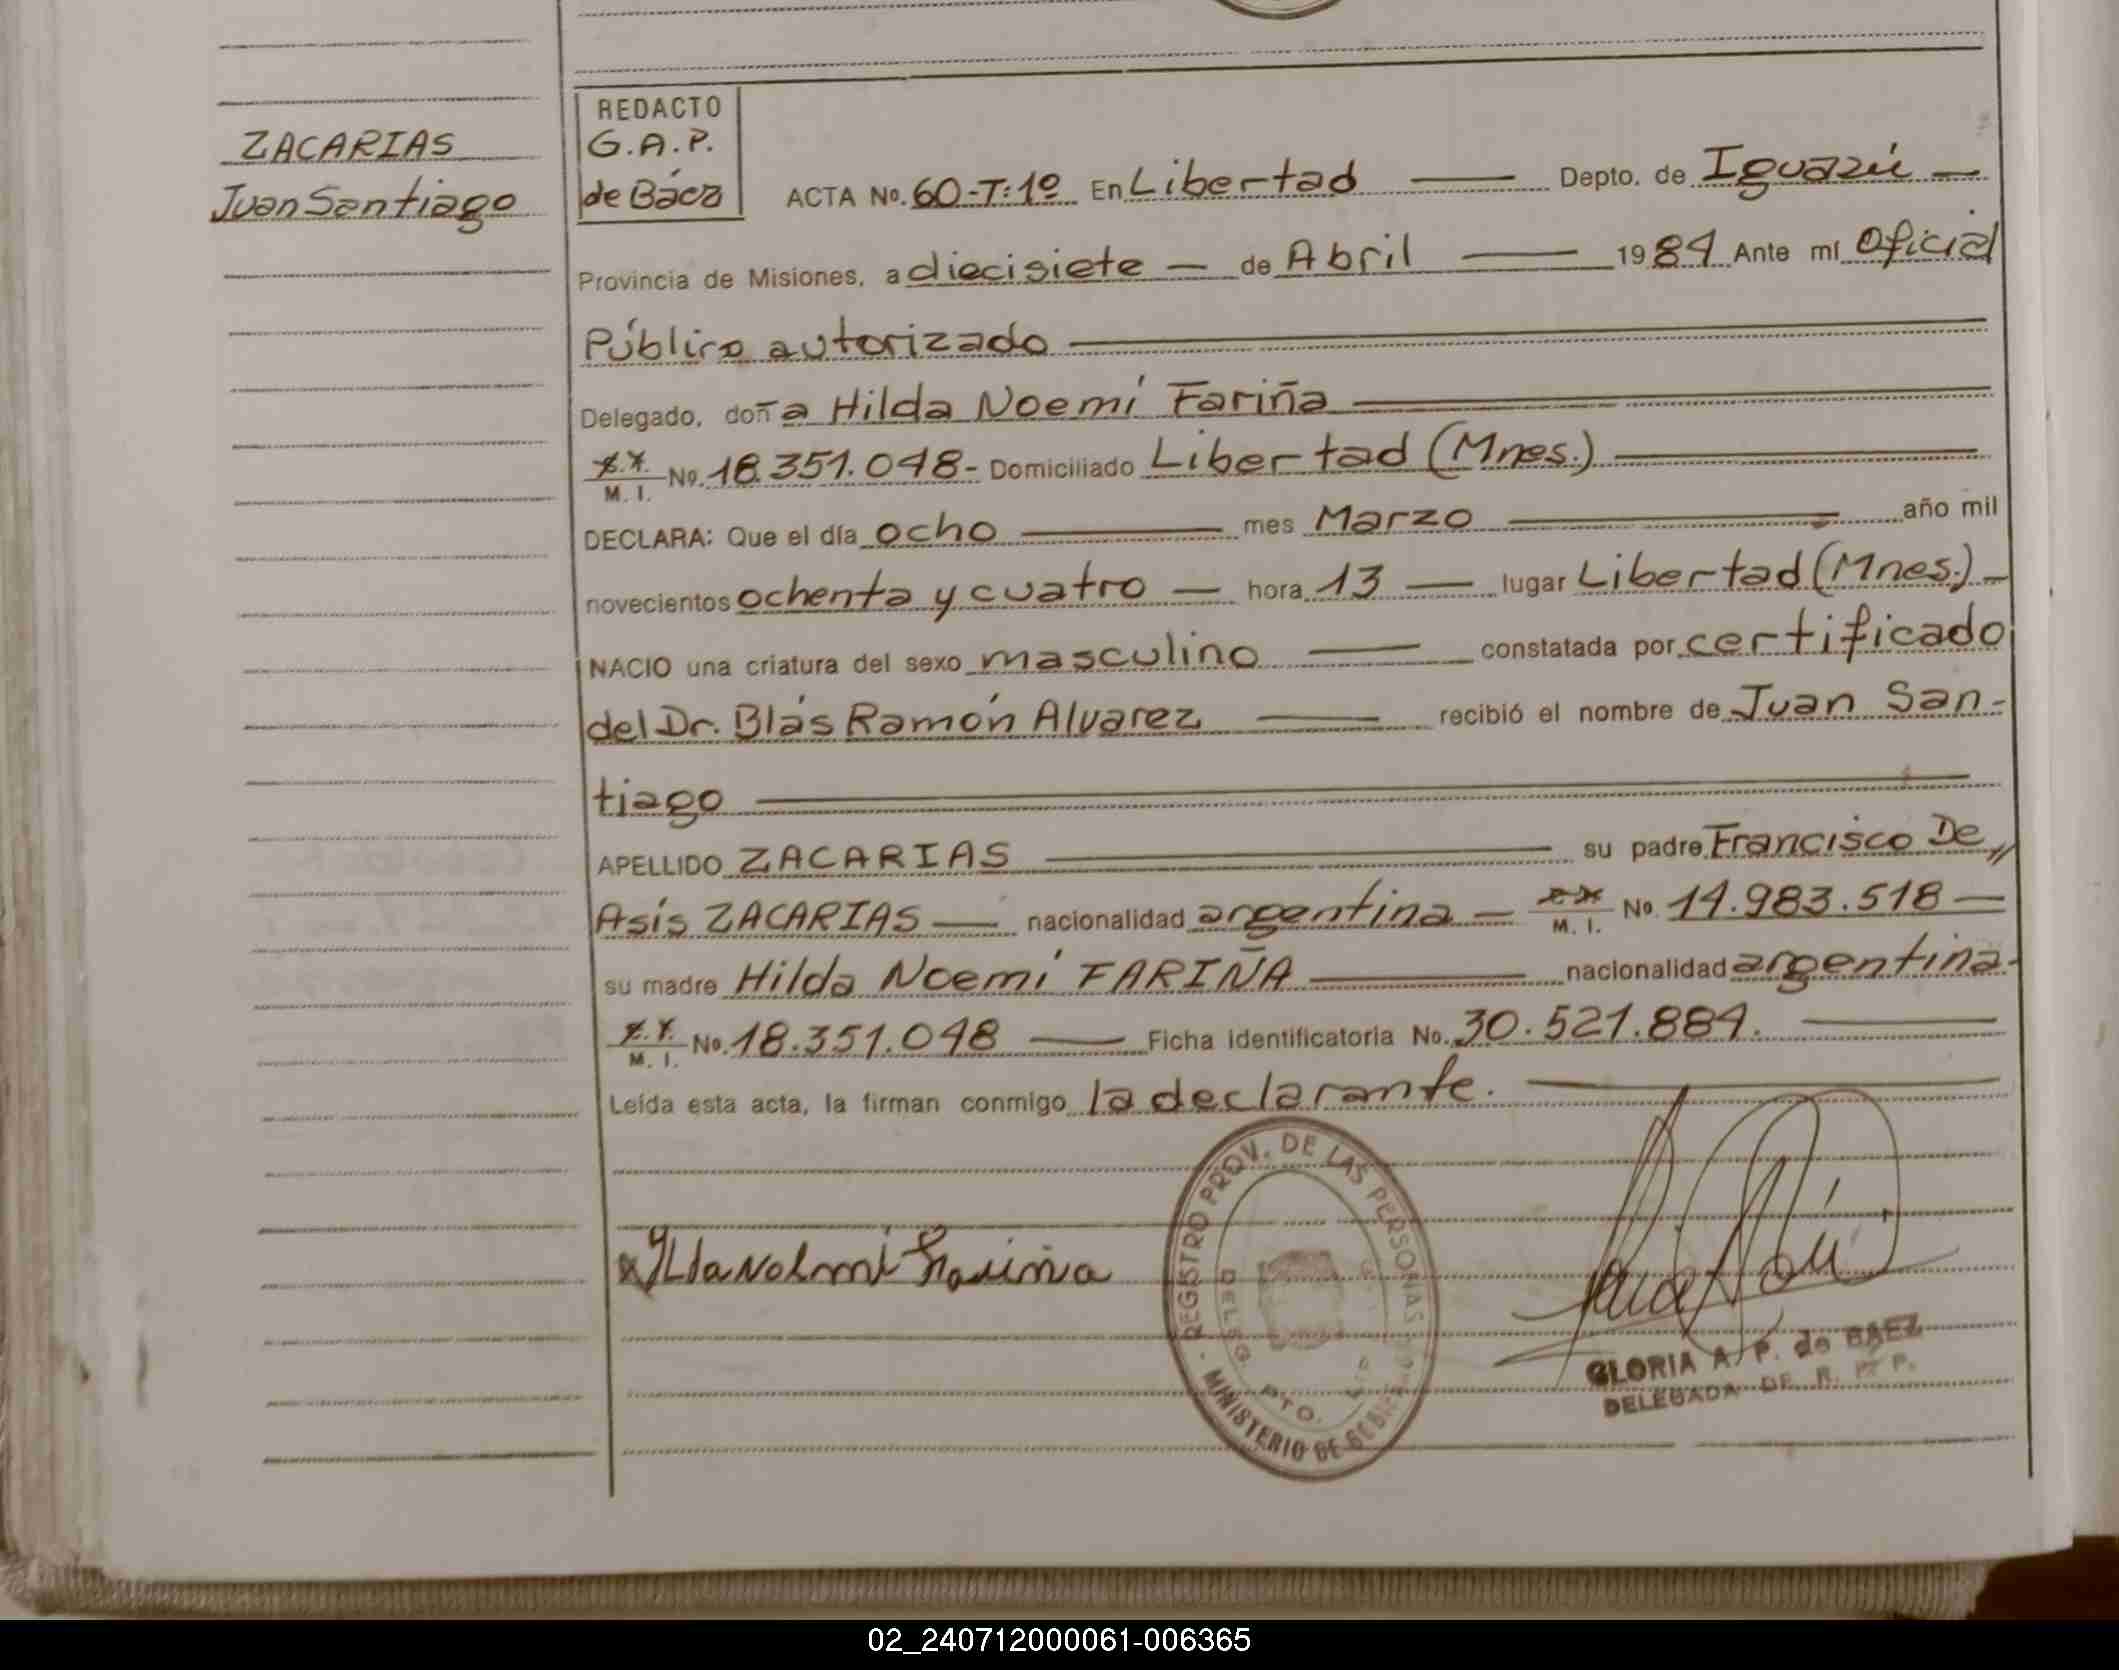 ZACARIAS
Juan Santiago
REDACTO
G.A.P.
de Báez
ACTA No. 60-T:1º En Libertad Depto. de Iguazú
Provincia de Misiones, a diecisiete de Abril 1984 Ante mí Oficial
Público autorizado
Delegado, doña Hilda Noemí Fariña
M. I. No. 18.351.048- Domiciliado Libertad (Mnes.)
DECLARA: Que el día ocho mes Marzo año mil
novecientos ochenta y cuatro hora 13 lugar Libertad (Mnes.)
NACIO una criatura del sexo masculino constatada por certificado
del Dr. Blás Ramón Alvarez recibió el nombre de Juan San-
tiago
APELLIDO ZACARIAS su padre Francisco De
Asís ZACARIAS nacionalidad argentina M. I. No. 14.983.518
su madre Hilda Noemí FARIÑA nacionalidad argentina
M. I. No. 18.351.048 Ficha identificatoria No. 30.521.884.
Leída esta acta, la firman conmigo la declarante.
REGISTRO PROV. DE LAS PERSONAS
MINISTERIO DE
DELEG.
PTO.
GLORIA A. P. de BAEZ
DELEGADA DE R. P.
02_240712000061-006365